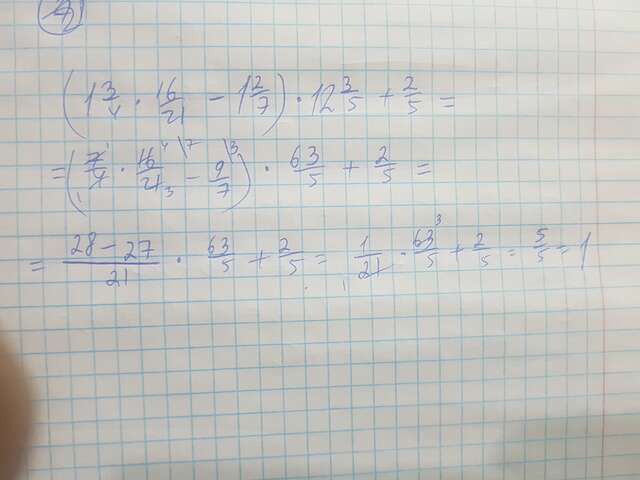 4)
(1 3/4 · 16/21 − 1 2/7) · 12 3/5 + 2/5 =
= (7/4 · 16/21 − 9/7) · 63/5 + 2/5 =
= 28 − 27/21 · 63/5 + 2/5 = 1/21 · 63/5 + 2/5 = 5/5 = 1